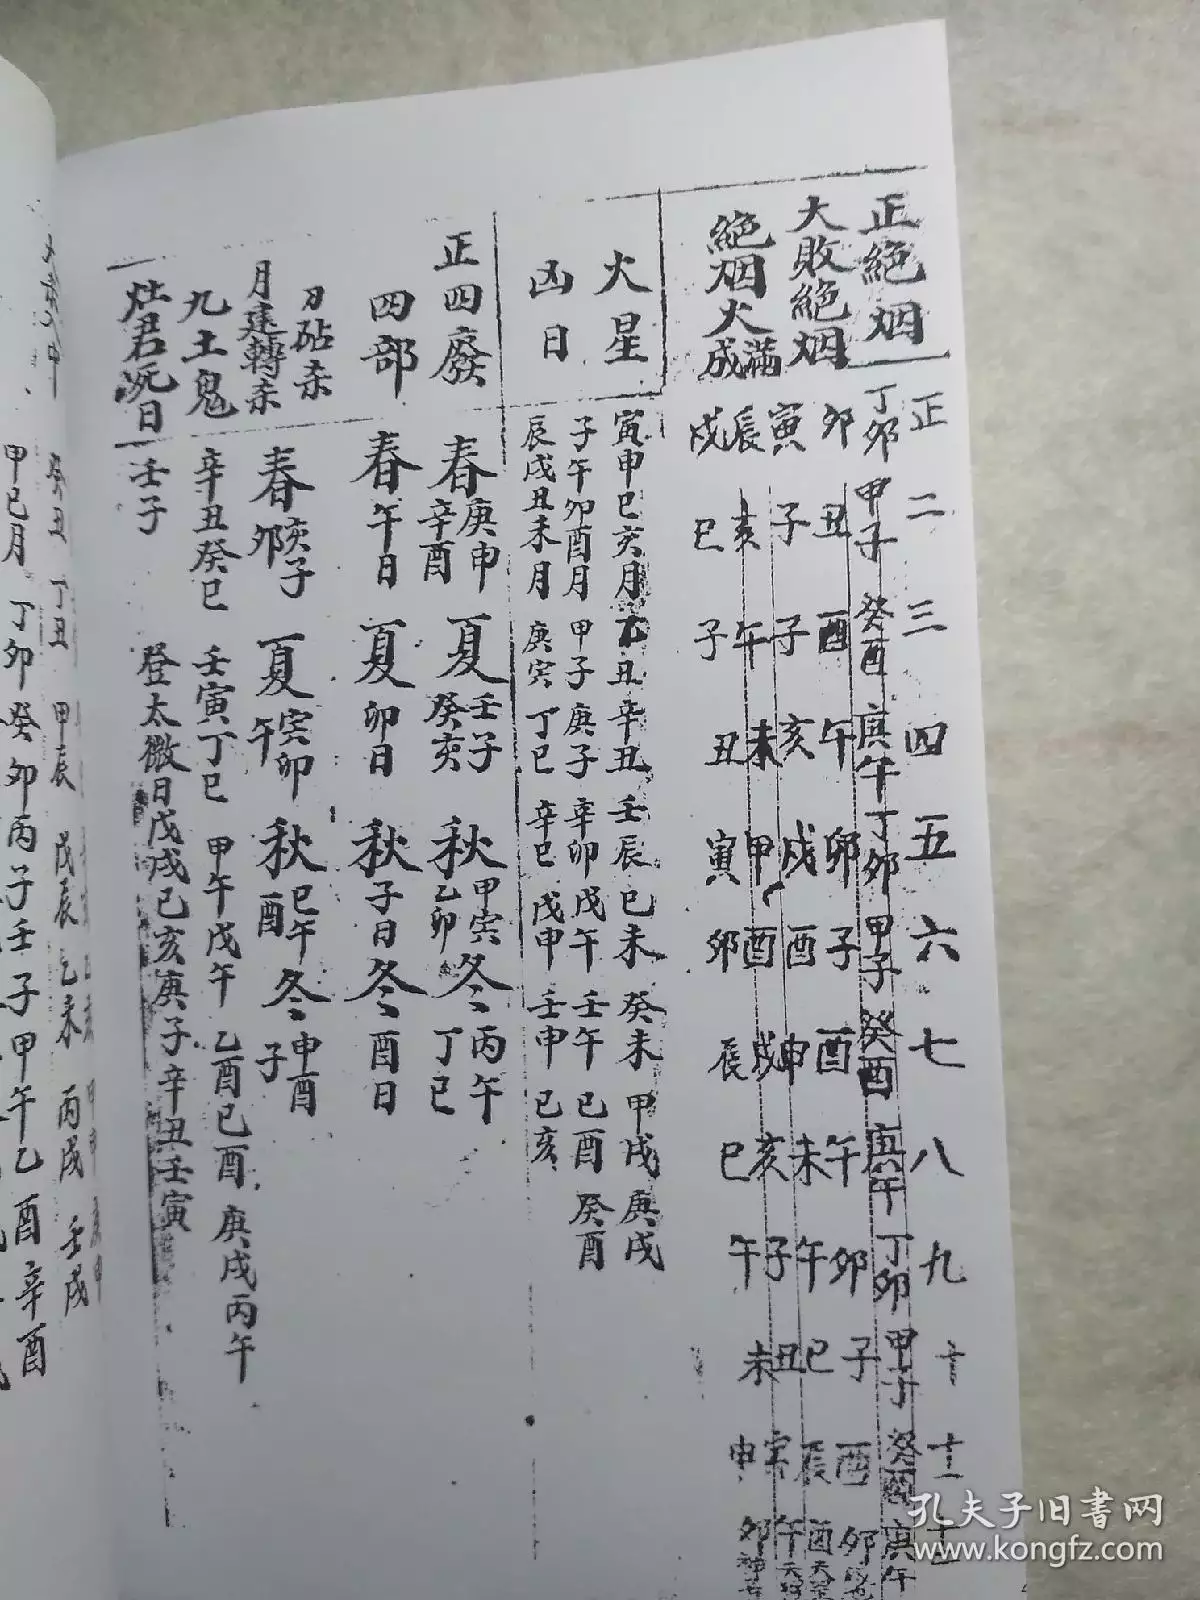 正二三四五六七八九十十一十二
正絕烟
丁卯 甲子 癸酉 庚午 丁卯 甲子 癸酉 庚午 丁卯 甲子 癸酉 庚午
大敗絕烟
卯 丑 酉 午 卯 子 酉 午 卯 子 酉 卯
寅 子 子 亥 戌 酉 申 未 午 巳 辰 酉
絕烟火
滿 辰 亥 午 未 申 酉 戌 亥 子 丑 寅 午
成 戌 巳 子 丑 寅 卯 辰 巳 午 未 申 卯
火星
凶日
寅申巳亥月 乙丑 辛丑 壬辰 己未 癸未 甲戌 庚戌
子午卯酉月 甲子 庚子 辛卯 戊午 壬午 己酉 癸酉
辰戌丑未月 庚寅 丁巳 辛巳 戊申 壬申 己亥
正四廢 春庚申辛酉 夏壬子癸亥 秋甲寅乙卯 冬丙午丁巳
四部 春午日 夏卯日 秋子日 冬酉日
刀砧杀 月建轉杀
春亥子卯 夏寅卯午 秋巳午酉 冬申酉子
九土鬼 辛丑癸巳 壬寅丁巳 甲午戊午 乙酉己酉 庚戌丙午
灶君死日 壬子 登太微日戊戌己亥庚子辛丑壬寅
癸丑 丁丑 甲辰 戊辰 乙未 丙戌 壬戌
甲己月 丁卯癸卯丙子壬子甲午乙酉辛酉
孔夫子旧书网
www.kongfz.com